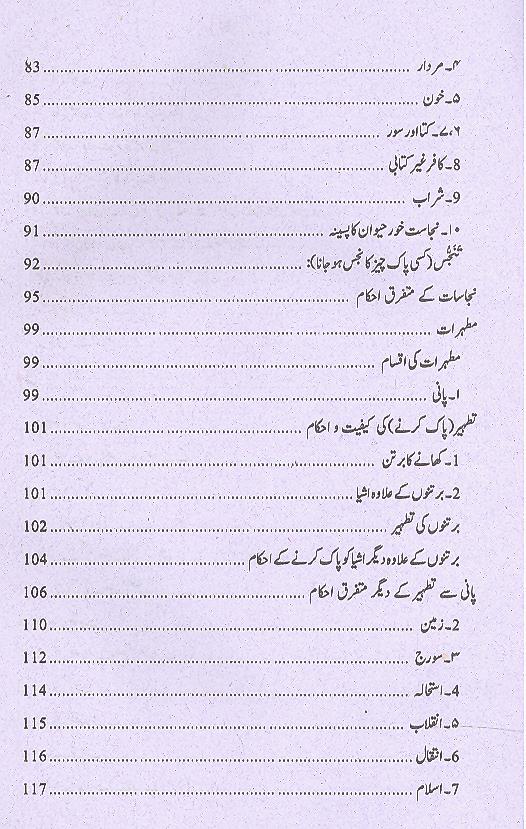 ۴۔مردار ........ 83
۵۔خون ........ 85
۷،۶۔کتا اور سور ........ 87
8۔کافر غیر کتابی ........ 87
9۔شراب ........ 90
۱۰۔نجاست خور حیوان کا پسینہ ........ 91
تَنَجُّس (کسی پاک چیز کا نجس ہو جانا): ........ 92
نجاسات کے متفرق احکام ........ 95
مطہرات ........ 99
مطہرات کی اقسام ........ 99
۱۔پانی ........ 99
تطہیر (پاک کرنے) کی کیفیت و احکام ........ 101
1۔کھانے کا برتن ........ 101
2۔برتنوں کے علاوہ اشیا ........ 101
برتنوں کی تطہیر ........ 102
برتنوں کے علاوہ دیگر اشیا کو پاک کرنے کے احکام ........ 104
پانی سے تطہیر کے دیگر متفرق احکام ........ 106
2۔زمین ........ 110
۳۔سورج ........ 112
4۔استحالہ ........ 114
۵۔انقلاب ........ 115
6۔انتقال ........ 116
7۔اسلام ........ 117